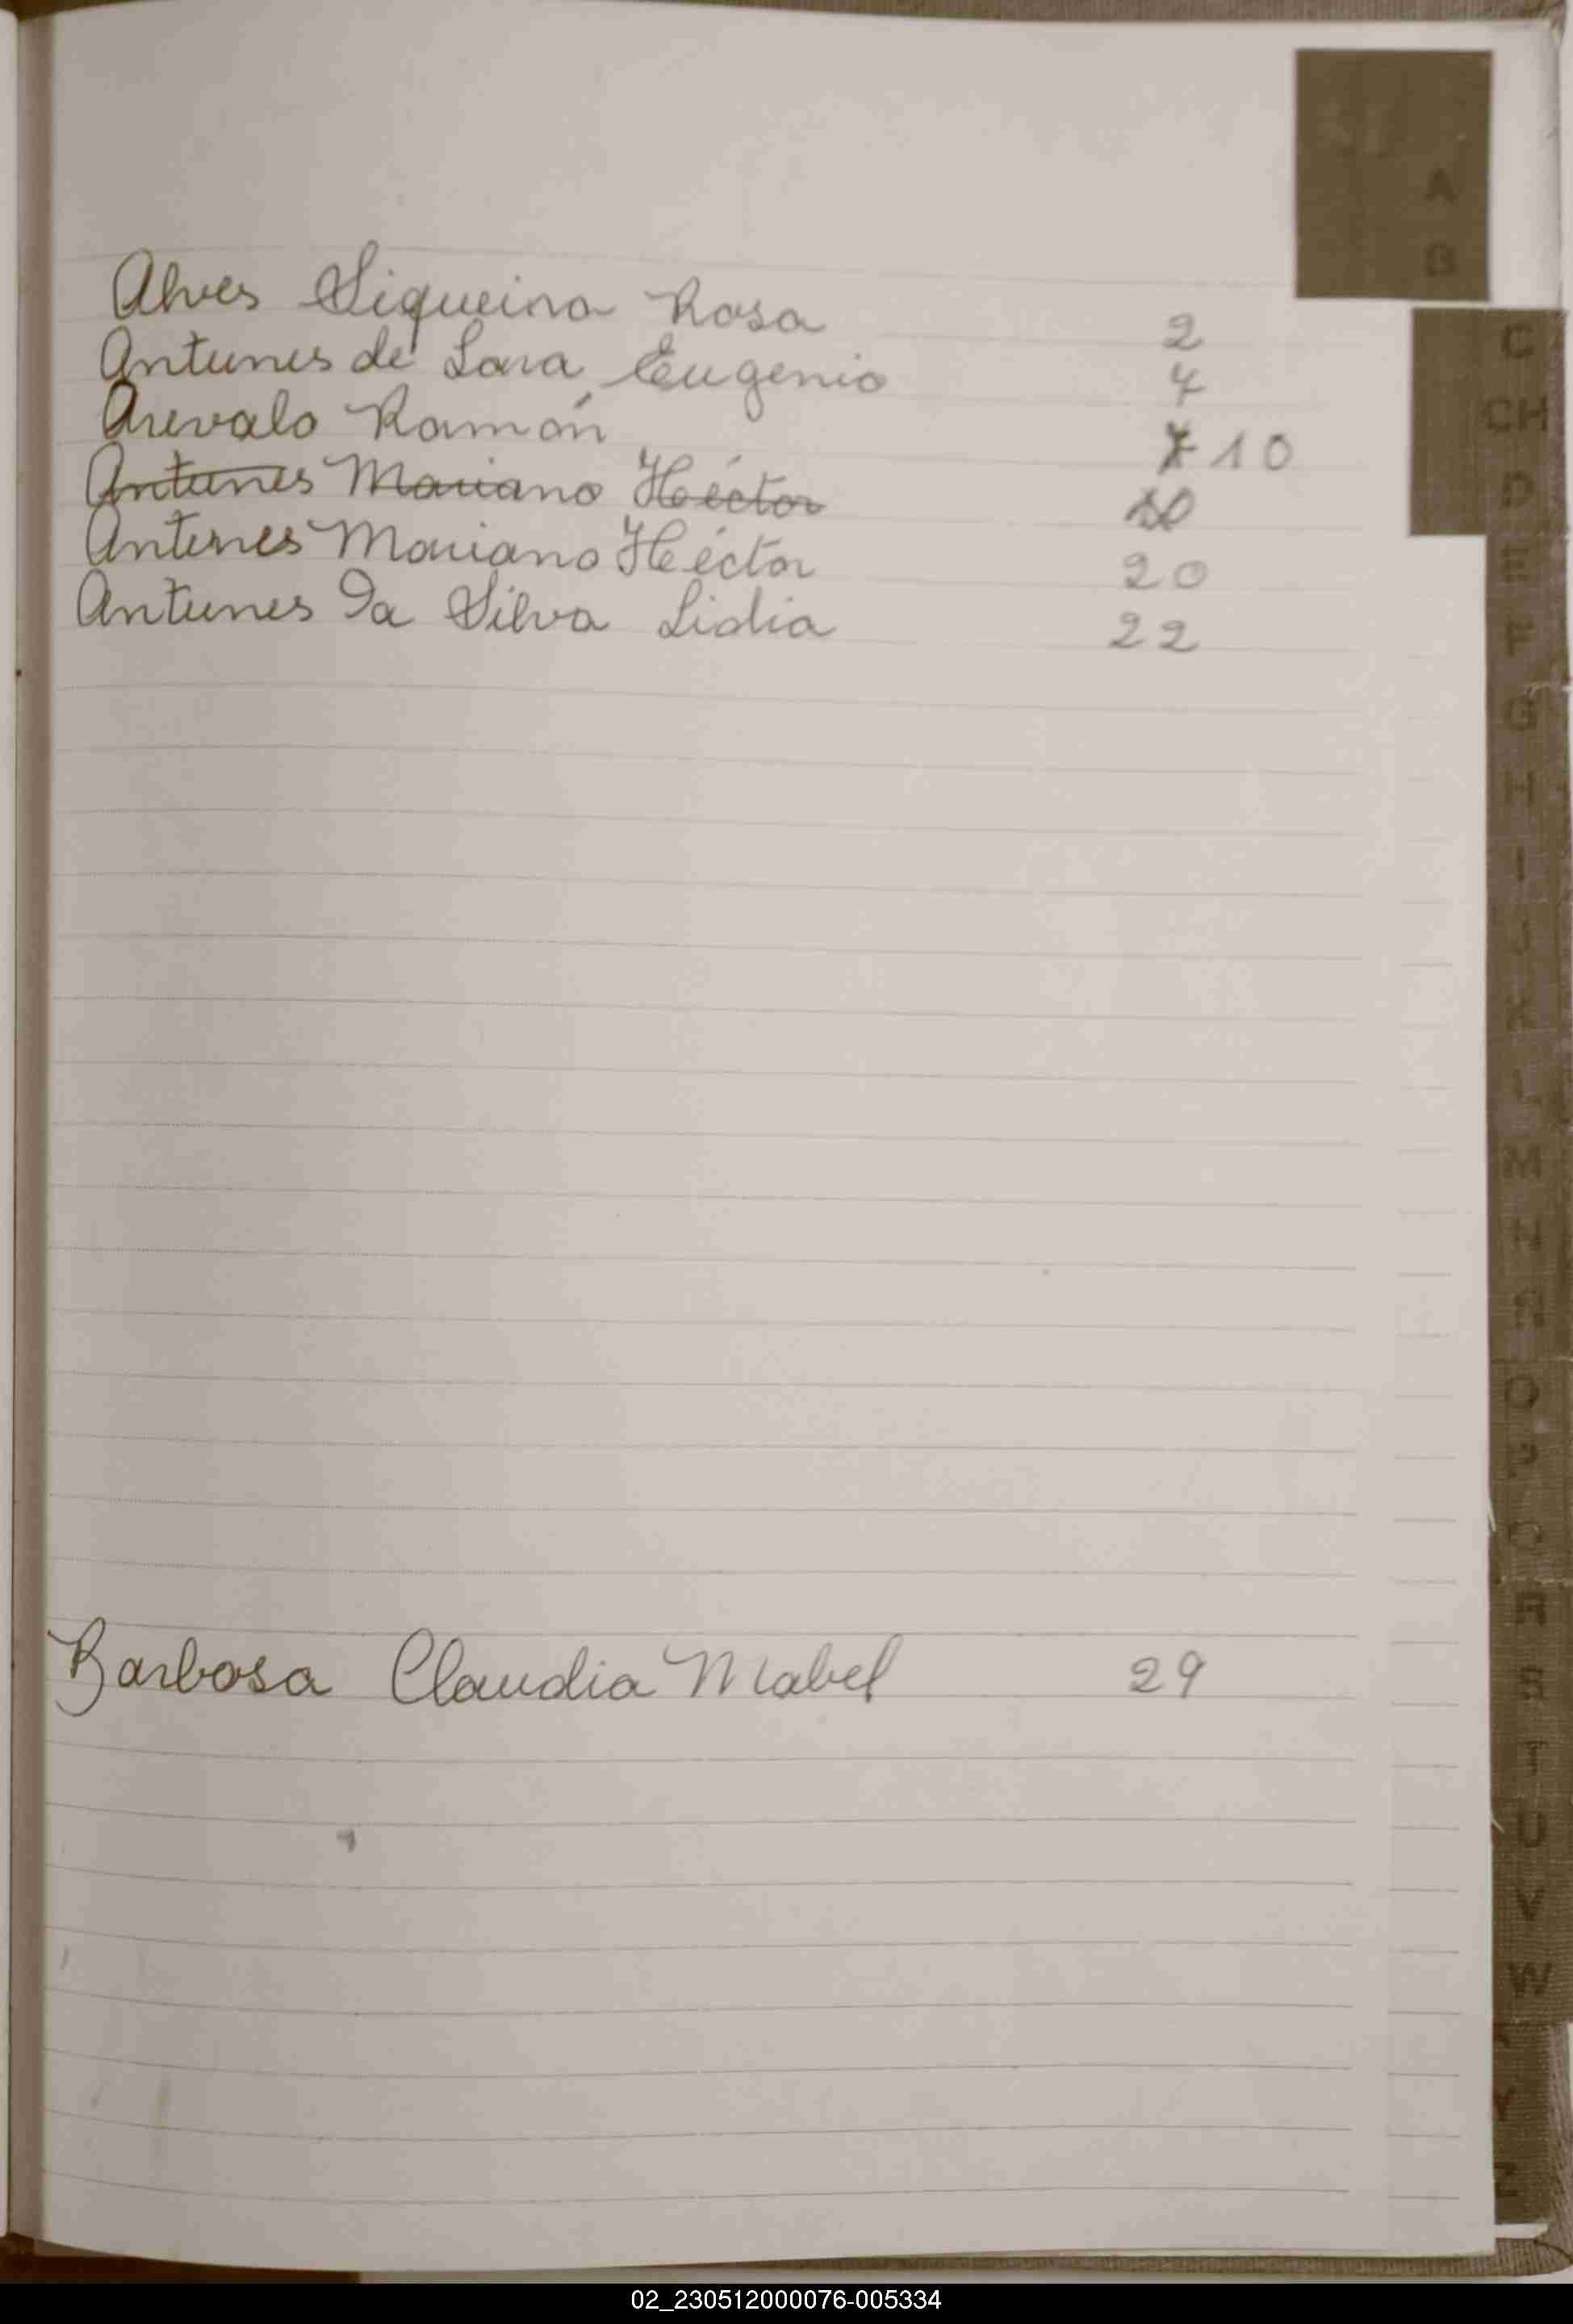 A
B
Alves Siqueira Rosa 2
Antunes de Lara Eugenio 4
Arevalo Ramón 7 10
Antunes Mariano Héctor
Antunes Mariano Héctor 20
Antunes Da Silva Lidia 22
Barbosa Claudia Mabel 29
C
CH
D
E
F
G
H
I
J
K
L
M
N
Ñ
O
P
Q
R
S
T
U
V
W
Y
Z
02_230512000076-005334